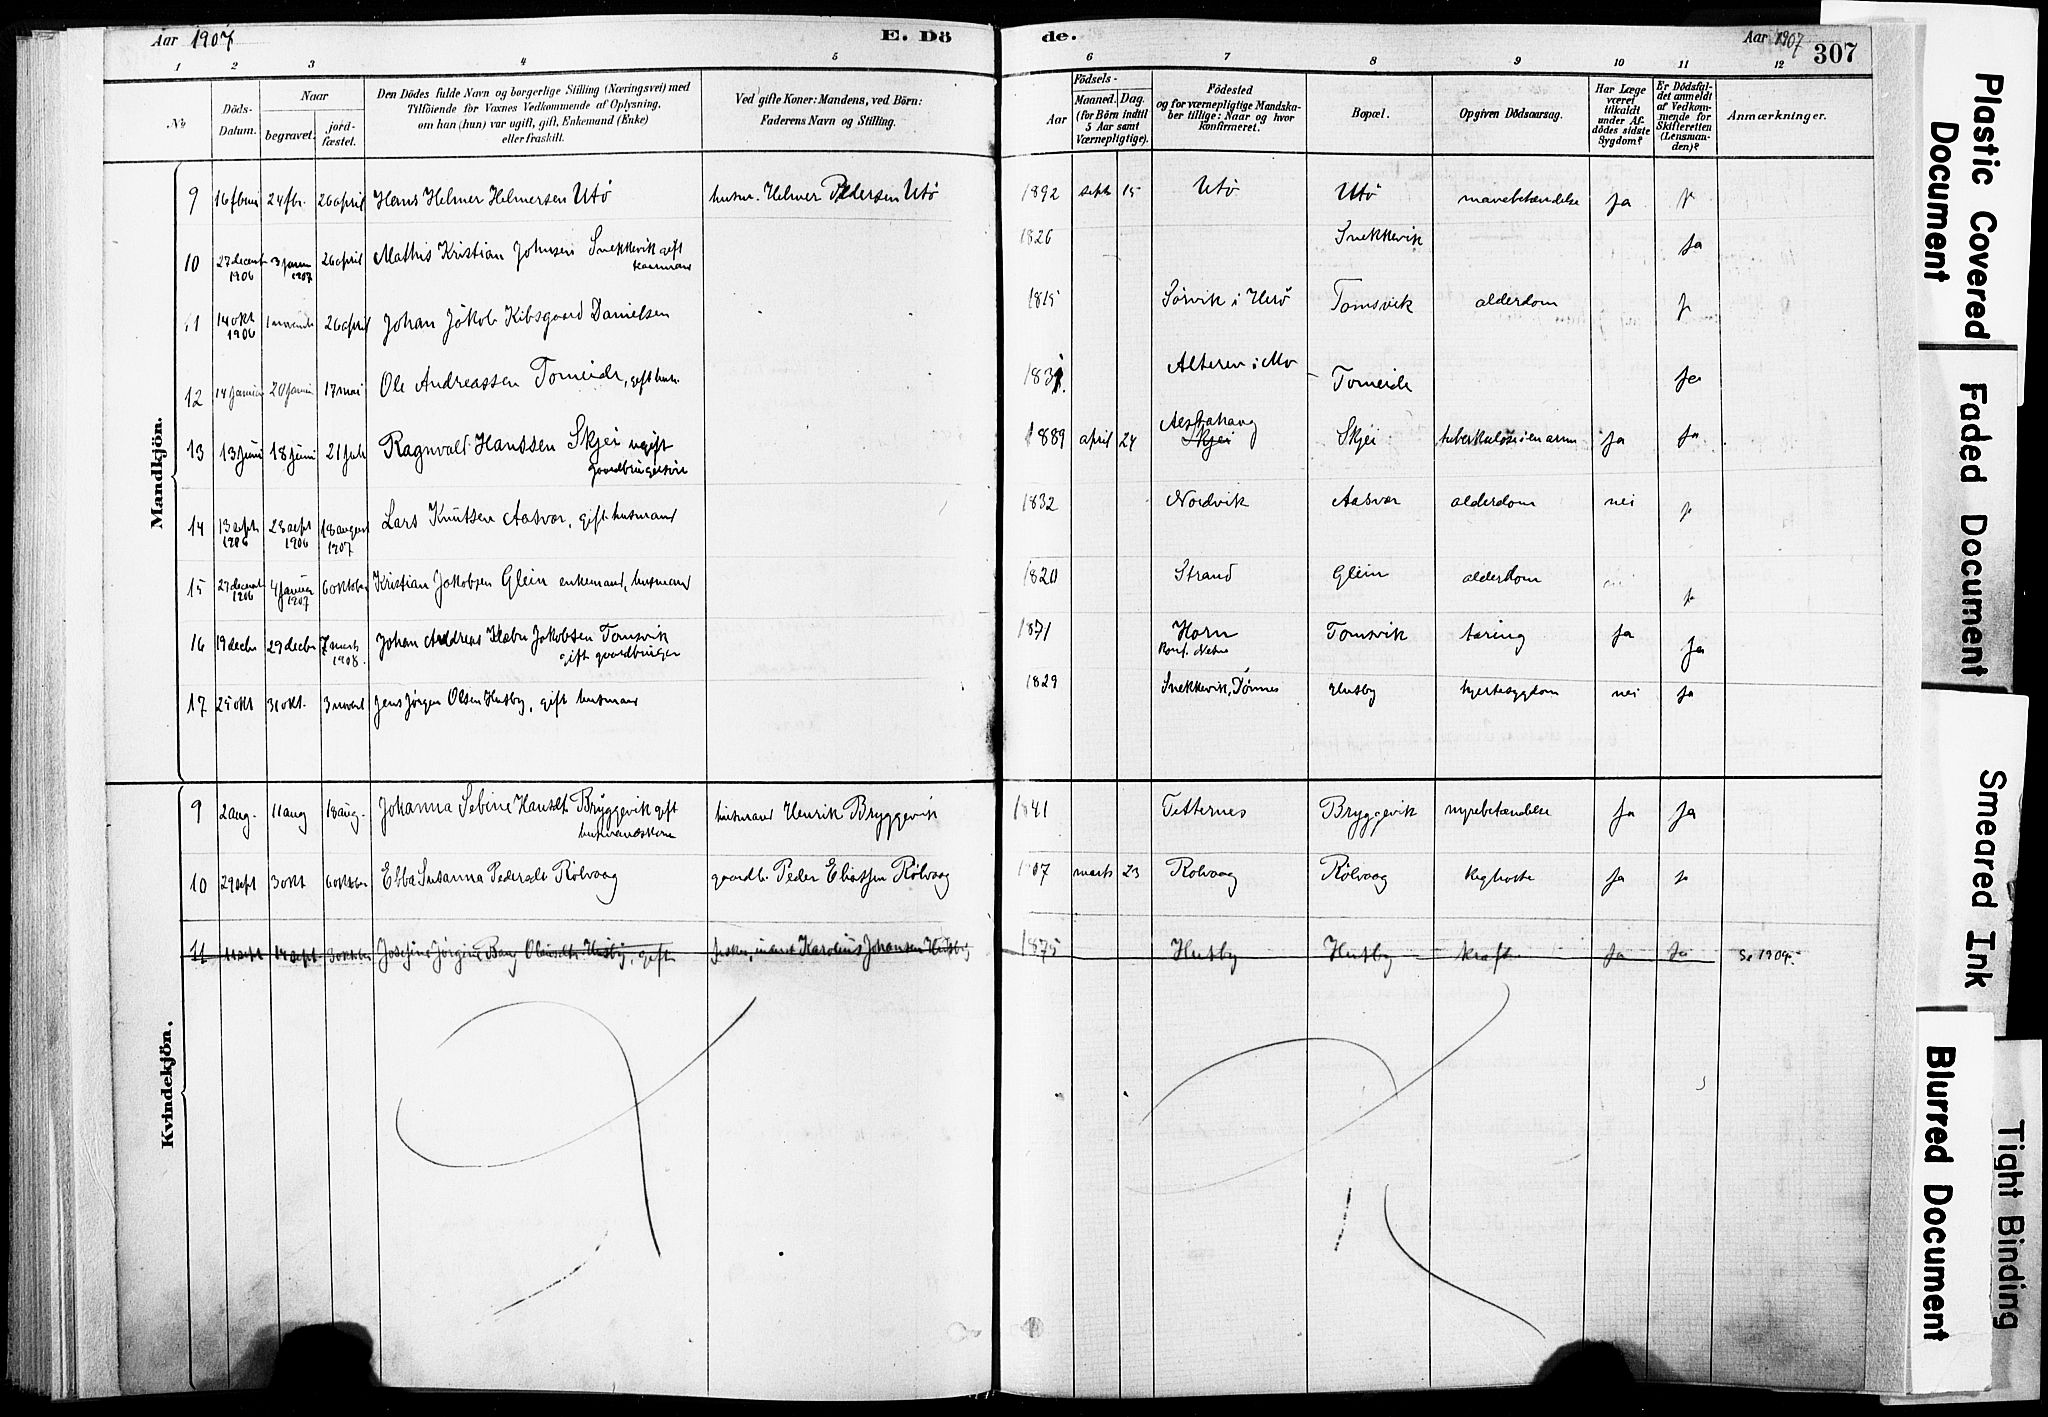 Aar 1907
E. Dö
de.
Aar 1907
307
1 2 3 4 5 6 7 8 9 10 11 12
No
Döds-Datum.
Naar
begravet.
jord-fæstet.
Den Dödes fulde Navn og borgerlige Stilling (Næringsvei) med
Tilföiende for Voxnes Vedkommende af Oplysning,
om han (hun) var ugift, gift, Enkemand (Enke)
eller fraskilt.
Ved gifte Koner: Mandens, ved Börn:
Faderens Navn og Stilling.
Födsels-
Aar
Maaned. Dag.
(for Börn indtil
5 Aar samt
Værnepligtige).
Födested
og for værnepligtige Mandska-
ber tillige: Naar og hvor
konfirmeret.
Bopæl.
Opgiven Dödsaarsag.
Har Læge
været
tilkaldt
under Af-
dödes sidste
Sygdom?
Er Dödsfal-
det anmeldt
af Vedkom-
mende for
Skifteretten
(Lensman-
den)?
Anmærkninger.
Mandkjön.
9 16 24 26 april Hans Helmer Helmersen Utö husm. Helmer Pedersen Utö 1892 sept 15 Utö Utö mavebetændelse ja
10 27 decem 1906 3 januar 1907 26 april Mathis Kristian Johnsen Snekkevik gift 1826 Snekkevik ja
11 14 okt 1906 1 novembr 26 april Johan Jakob Kibsgaard Danielsen 1815 Sörvik i Herö Tomsvik alderdom
12 14 januar 20 januar 17 mai Ole Andreassen Tomeide, gift husm. 1831. Alteren i Mo Tomeide ja
13 13 juni 18 juni 21 juli Ragnvald Hanssen Skjei ugift
gaardbrugersön 1889 april 24 Skjei Skjei tuberkulose i en arm ja ja
14 13 sept 1906 23 sept 1906 18 august 1907 Lars Knutsen Aasvær, gift husmand 1832 Nordvik Aasvær alderdom nei
15 27 decemb 1906 4 januar 1907 6 oktober Kristian Jakobsen Glein enkemand, husmand 1820 Strand Glein alderdom
16 19 decbr 29 decbr 7 marts 1908. Johan Andreas Jakobsen Tomsvik
gift gaardbruger 1871 Horn
konf. Nesne Tomsvik tæring ja ja
17 25 okt 31 okt. 3 novemb Jens Jörgen Olsen Husby, gift husmand 1829 Snekkevik, Dönnes Husby hjertesygdom nei ja
Kvindekjön.
9 2 aug. 11 aug 18 aug. Johanna Sebine Hansdt Bryggevik gift
husmandskone husmand Henrik Bryggevik 1841 Tetternes Bryggevik nyrebetændelse ja ja
10 29 sept 3 okt 6 oktober Ebba Susanna Pedersdt Rölvaag gaardb. Peder Eliassen Rölvaag 1907 marts 23 Rölvaag Rölvaag kighoste ja ja
11 11 sept 14 sept 3 oktober Josefine Jörgine Bang Olausdtr Husby, gift Karolius Johansen Husby 1875 Husby Husby kræft ja ja Se 1909.
Plastic Covered Document
Faded Document
Smeared Ink
Blurred Document
Tight Binding